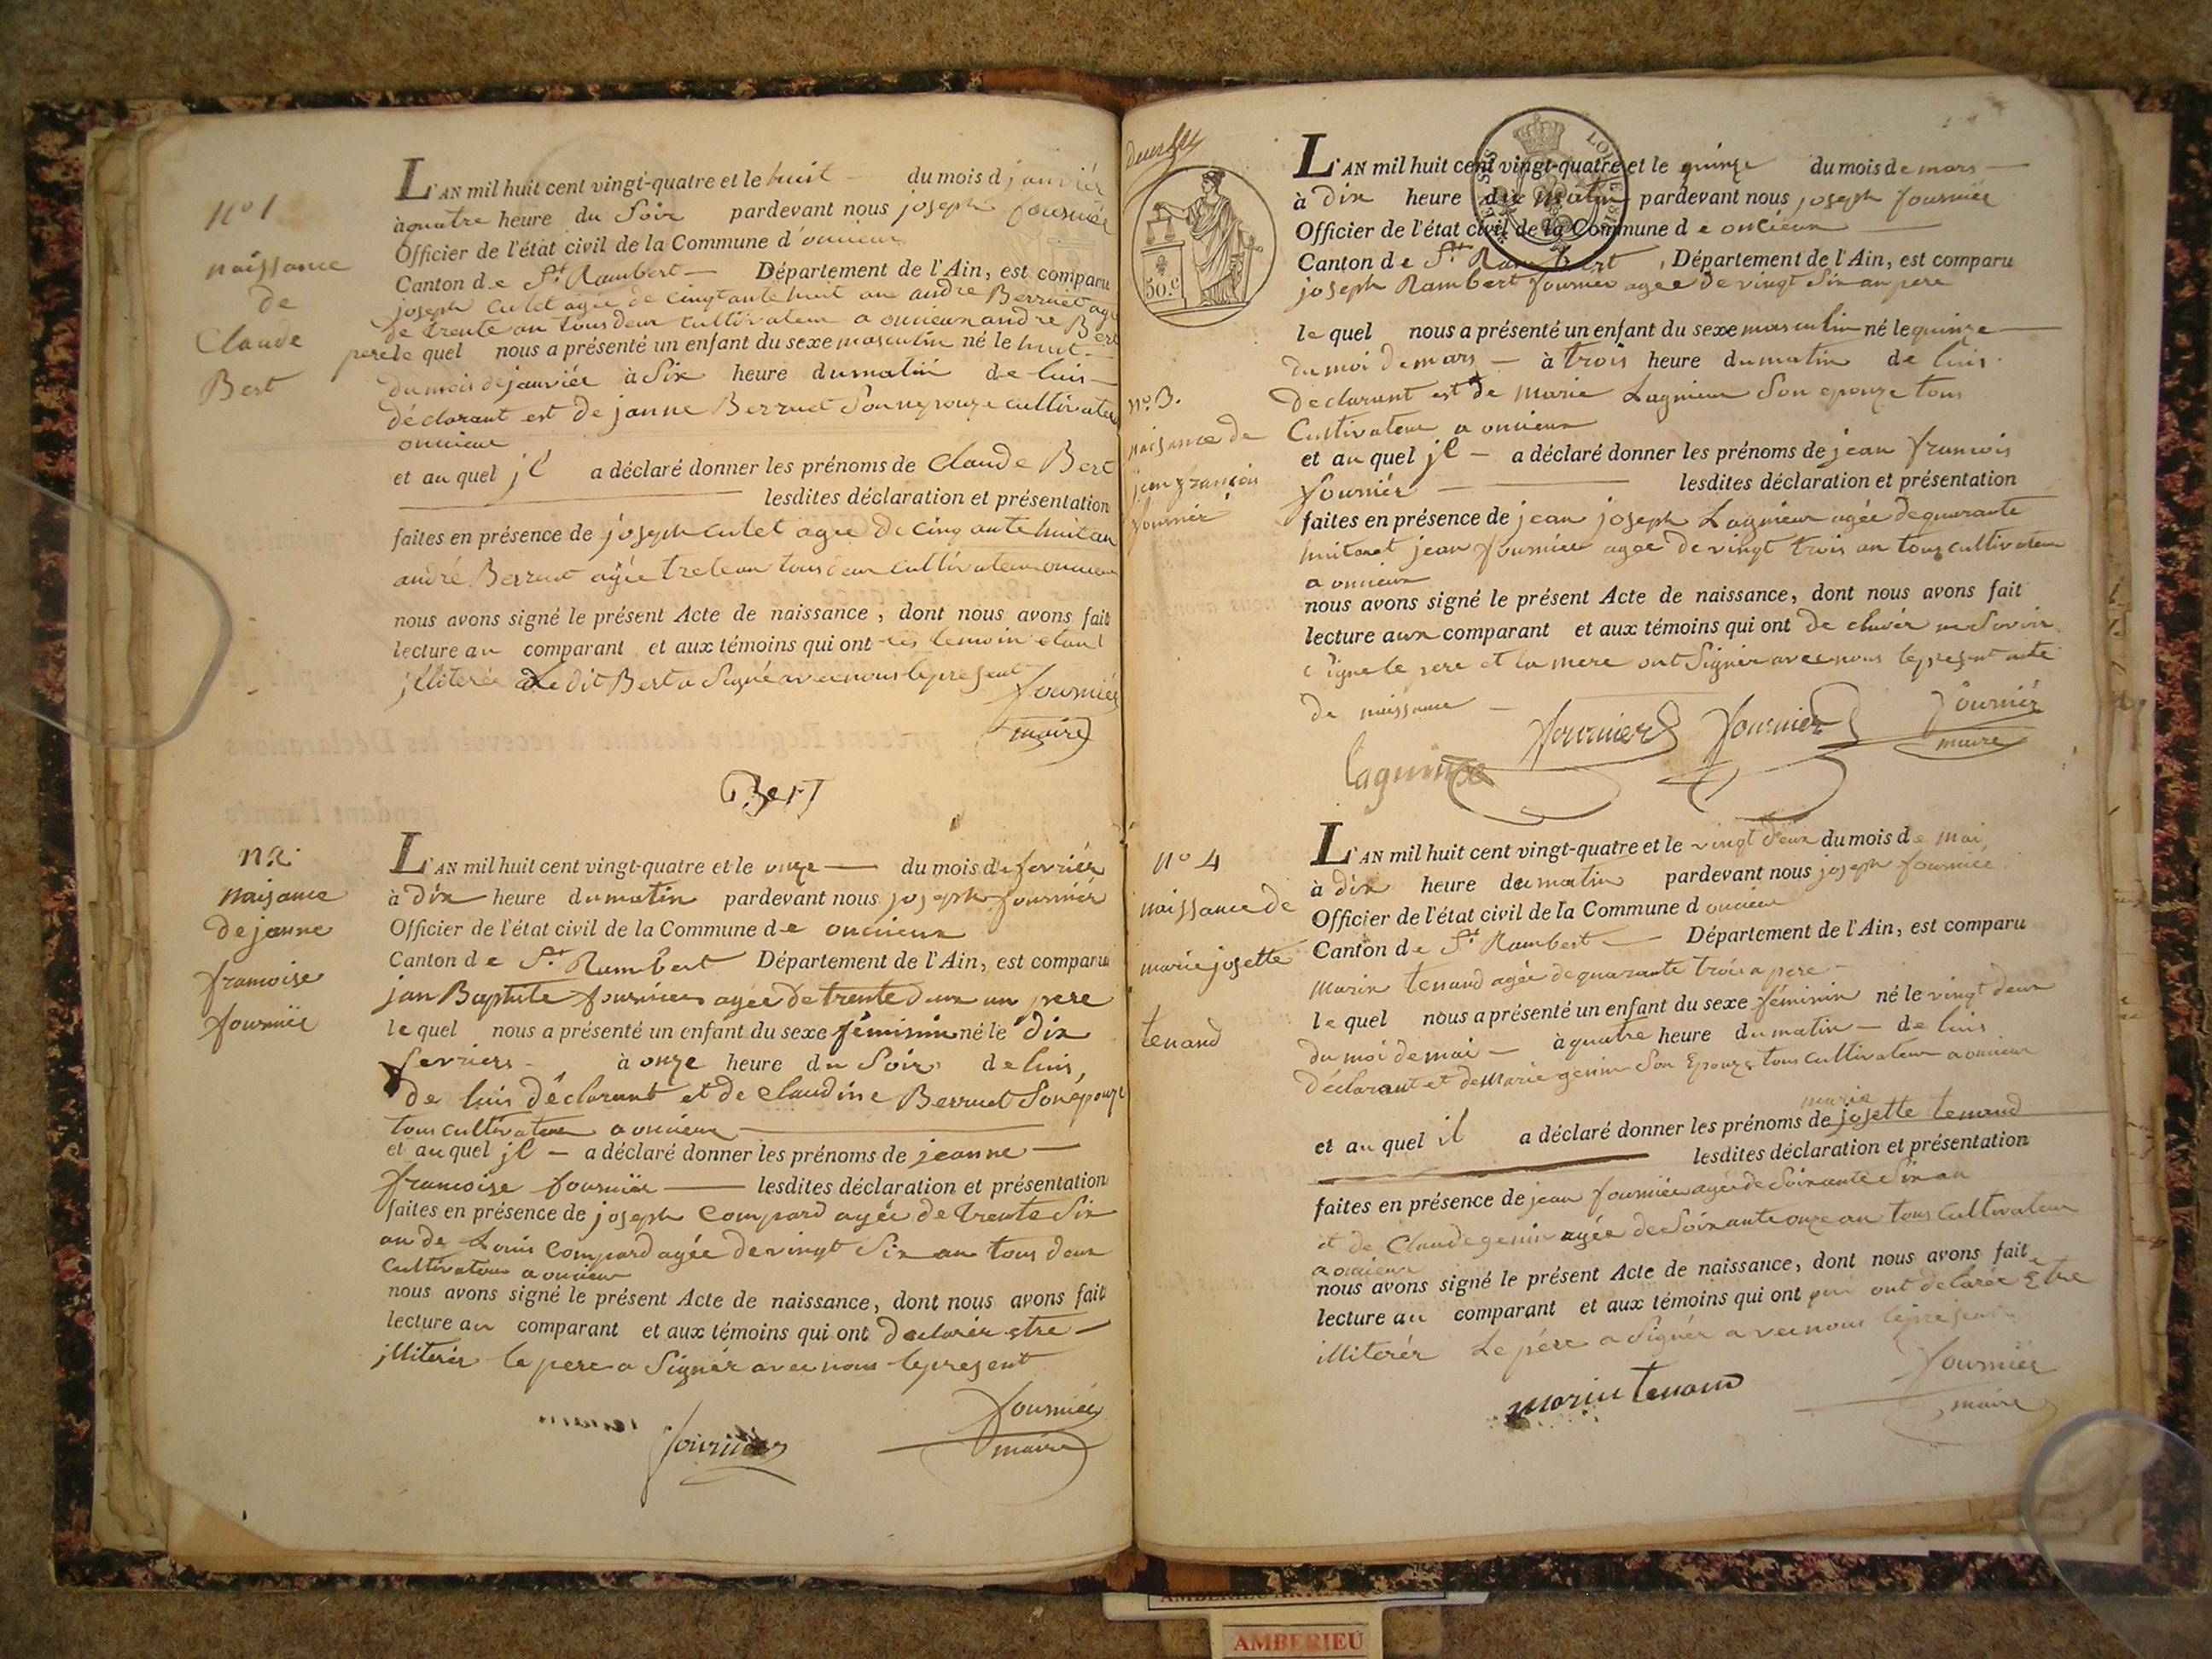 N° 1
naissance
de
Claude
Bert
L'AN mil huit cent vingt-quatre et le huit du mois d janviér
à quatre heure du Soir pardevant nous joseph fourniér
Officier de l'état civil de la Commune d'oncieux
Canton de St. Rambert Département de l'Ain, est comparu
joseph Culet agée de cinqtante huit an andre Berruet agé
de trente an tous deux cultivateur a oncieux andre Bert
pere le quel nous a présenté un enfant du sexe masculin né le huit
du mois de janviér à Six heure du matin de luis
déclarant est de janne Berruet Son nepouze cultivateur
oncieux
et au quel jl a déclaré donner les prénoms de Claude Bert
lesdites déclaration et présentation
faites en présence de joseph Culet agée de cinq ante huit an
andré Berruet agée trete an tous deux cultivateur oncieux
nous avons signé le présent Acte de naissance, dont nous avons fait
lecture au comparant et aux témoins qui ont les temoin etant
jlliterée Le dit Bert a Signé avec nous le present
fourniér
maire
Bert
N 2.
naisance
de janne
francoise
fourniér
L'AN mil huit cent vingt-quatre et le onze du mois de fevriér
à dix heure du matin pardevant nous joseph fourniér
Officier de l'état civil de la Commune de oncieux
Canton de St. Rambert Département de l'Ain, est comparu
jan Baptiste fourniér agée de trente deux an pere
le quel nous a présenté un enfant du sexe féminin né le dix
fevriers à onze heure du Soir de luis,
de luis déclarant et de claudine Berruet Son épouze
tous cultivateur a oncieux
et au quel jl a déclaré donner les prénoms de jeanne
francoise fourniér lesdites déclaration et présentation
faites en présence de joseph Compard agée de trente Six
an de Louis Compard agée de vingt Six an tous deux
Cultivateur a oncieux
nous avons signé le présent Acte de naissance, dont nous avons fait
lecture au comparant et aux témoins qui ont declarér etre
jlliterér le pere a Signér avec nous le present
fournier
fourniér
maire
50.c
LOI DE 1816
n° 3.
naisance de
jean françois
fourniér
L'AN mil huit cent vingt-quatre et le quinze du mois de mars
à dix heure du matin pardevant nous joseph fourniér
Officier de l'état civil de la Commune de oncieux
Canton de St. Rambert, Département de l'Ain, est comparu
joseph Rambert fournier agée de vingt Six an pere
le quel nous a présenté un enfant du sexe masculin né le quinze
du moi de mars à trois heure du matin de luis
declarant est de marie Lagnieux Son epouze tous
Cultivateur a oncieux
et au quel jl a déclaré donner les prénoms de jean francois
fourniér lesdites déclaration et présentation
faites en présence de jean joseph Lagnieux agée de quarante
huit an et jean fourniér agée de vingt trois an tous cultivateur
a oncieux
nous avons signé le présent Acte de naissance, dont nous avons fait
lecture aux comparant et aux témoins qui ont de clarér ne Savoir
Signe le pere et la mere ont Signér avec nous le present acte
de naissance
fournier fournier fourniér
maire
n° 4
naissance de
marie josette
tenand
L'AN mil huit cent vingt-quatre et le vingt deux du mois de mai
à dix heure du matin pardevant nous joseph fourniér
Officier de l'état civil de la Commune d oncieux
Canton de St. Rambert Département de l'Ain, est comparu
marin tenand agée de quarante trois a pere
le quel nous a présenté un enfant du sexe féminin né le vingt deux
du moi de mai à quatre heure du matin de luis
déclarant et de marie genin Son Epouze tous cultivateur a oncieux
marie
et au quel il a déclaré donner les prénoms de josette tenand
lesdites déclaration et présentation
faites en présence de jean fourniér agée de Soixante Six an
et de Claude genin agée de Soixante onze an tous Cultivateur
a oncieux
nous avons signé le présent Acte de naissance, dont nous avons fait
lecture au comparant et aux témoins qui ont qui ont declarée Etre
illiterér Le pére a Signér avec nous le present
marin tenand
fourniér
maire
AMBERIEU